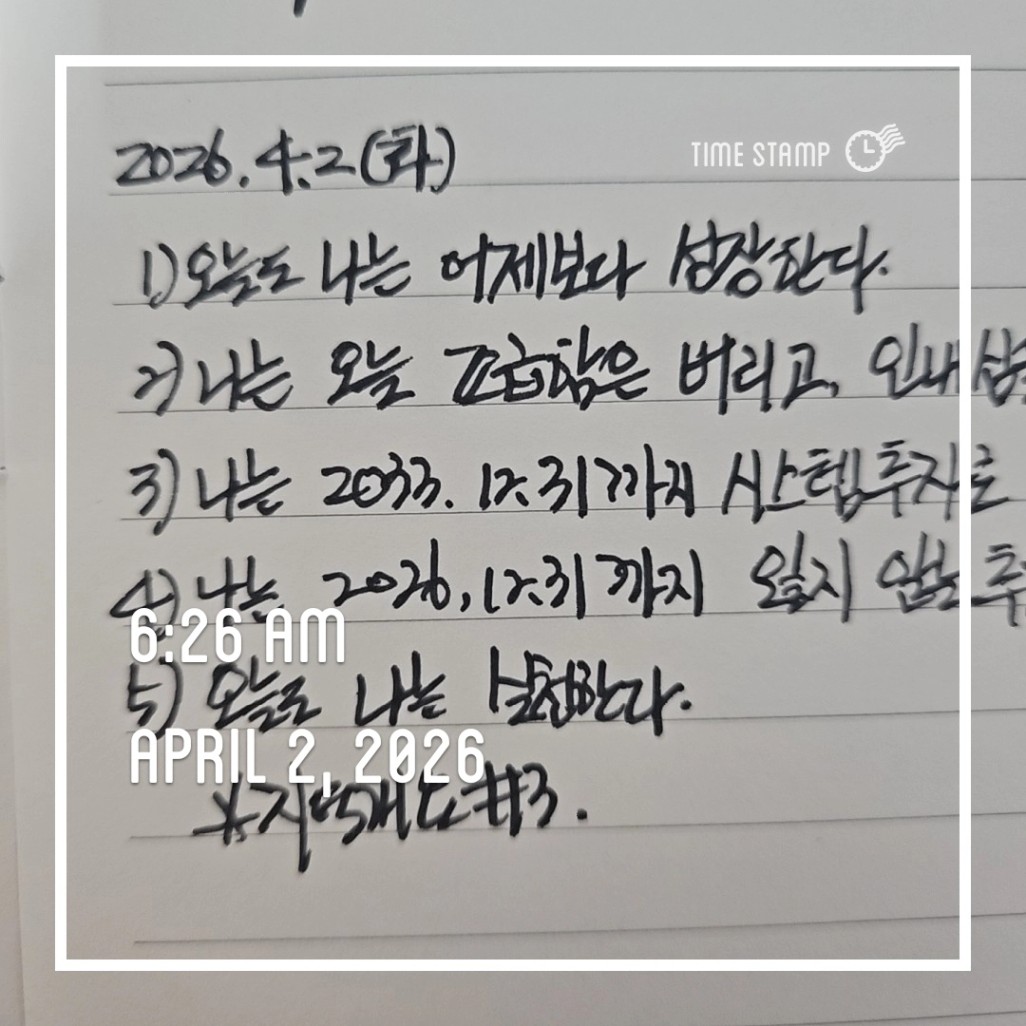 2026.4.2(화)
TIME STAMP
1) 오늘도 나는 어제보다 성장한다.
2) 나는 오늘 조급함은 버리고, 인내심
3) 나는 2033.12.31까지 시스템투자로
4) 나는 2026.12.31까지 잃지 않는 투
6:26 AM
5) 오늘도 나는 실천한다.
APRIL 2, 2026
#3.